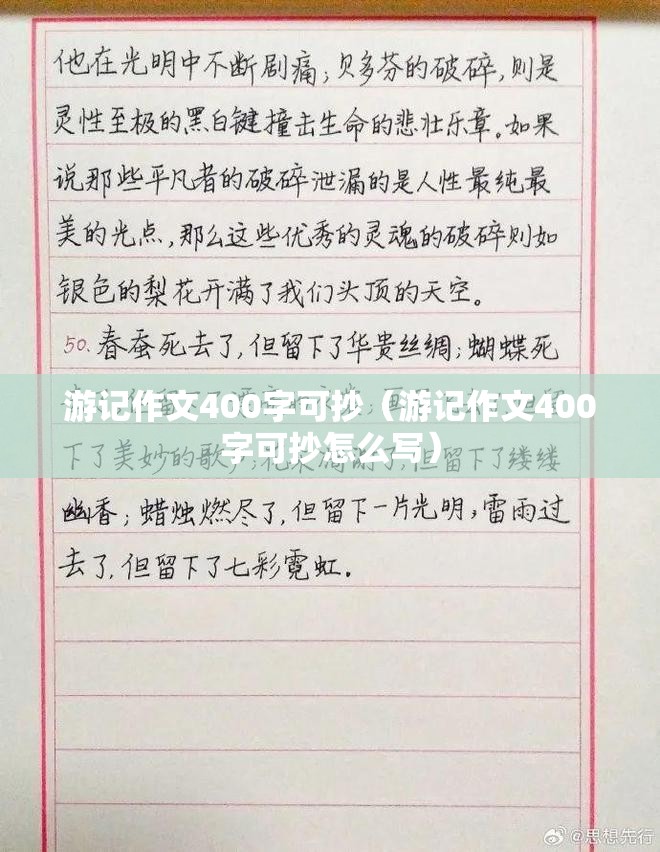 他在光明中不断剧痛；贝多芬的破碎，则是
灵性至极的黑白键撞击生命的悲壮乐章。如果
说那些平凡者的破碎泄漏的是人性最纯最
美的光点，那么这些优秀的灵魂的破碎则如
银色的梨花开满了我们头顶的天空。
50. 春蚕死去了，但留下了华贵丝绸；蝴蝶死
游记作文400字可抄（游记作文400
字可抄怎么写）
下了美妙的歌 但留下了缕缕
幽香；蜡烛燃尽了，但留下一片光明；雷雨过
去了，但留下了七彩霓虹。
@思想先行